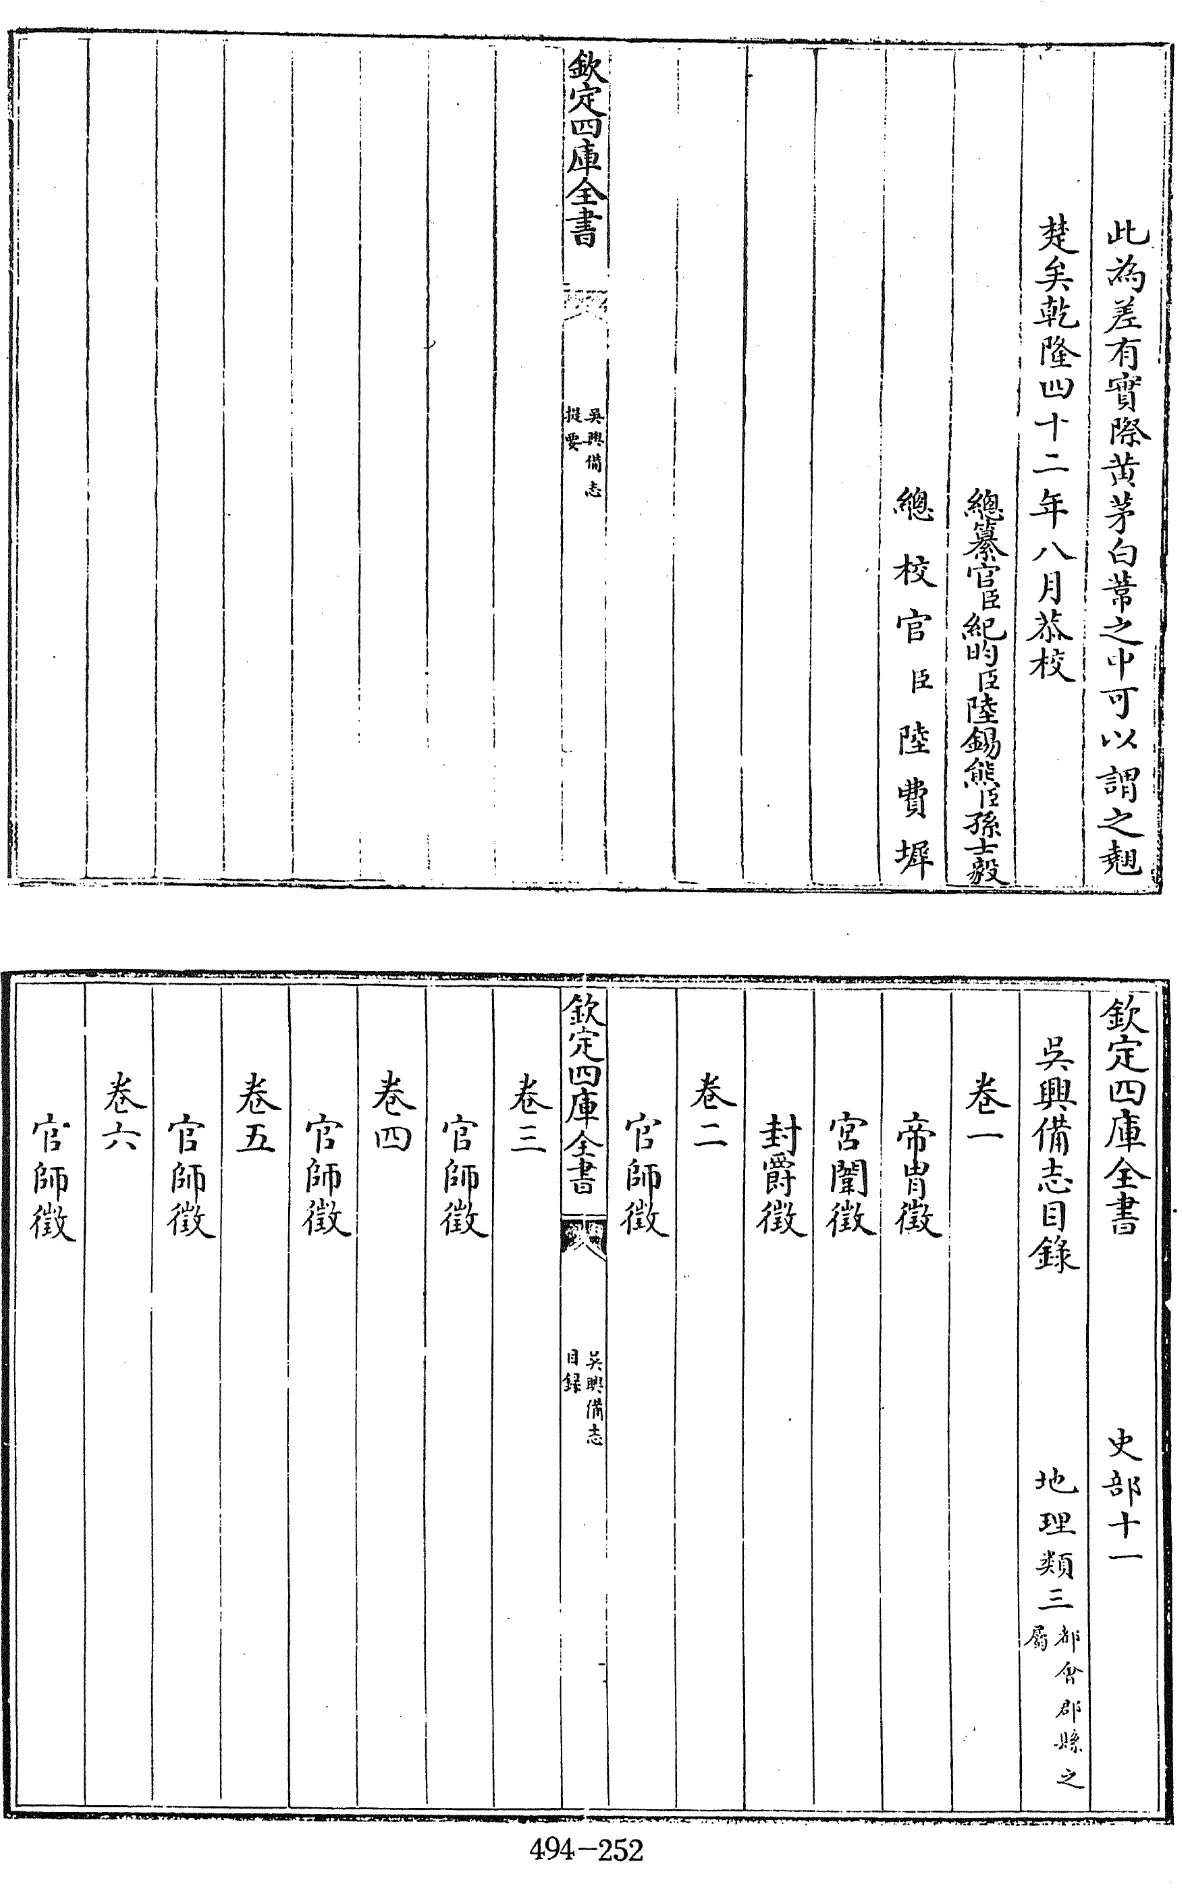 此為差有實際黄茅白葦之中可以謂之翹
楚矣乾隆四十二年八月恭校
總纂官臣紀昀臣陸錫熊臣孫士毅
總校官臣陸費墀
欽定四庫全書
吳興備志
提要
欽定四庫全書 史部十一
吳興備志目錄 地理類三都會郡縣之
屬
卷一
帝胄徵
宮闈徵
封爵徵
卷二
官師徵
欽定四庫全書
吳興備志
目録
卷三
官師徵
卷四
官師徵
卷五
官師徵
卷六
官師徵
494-252